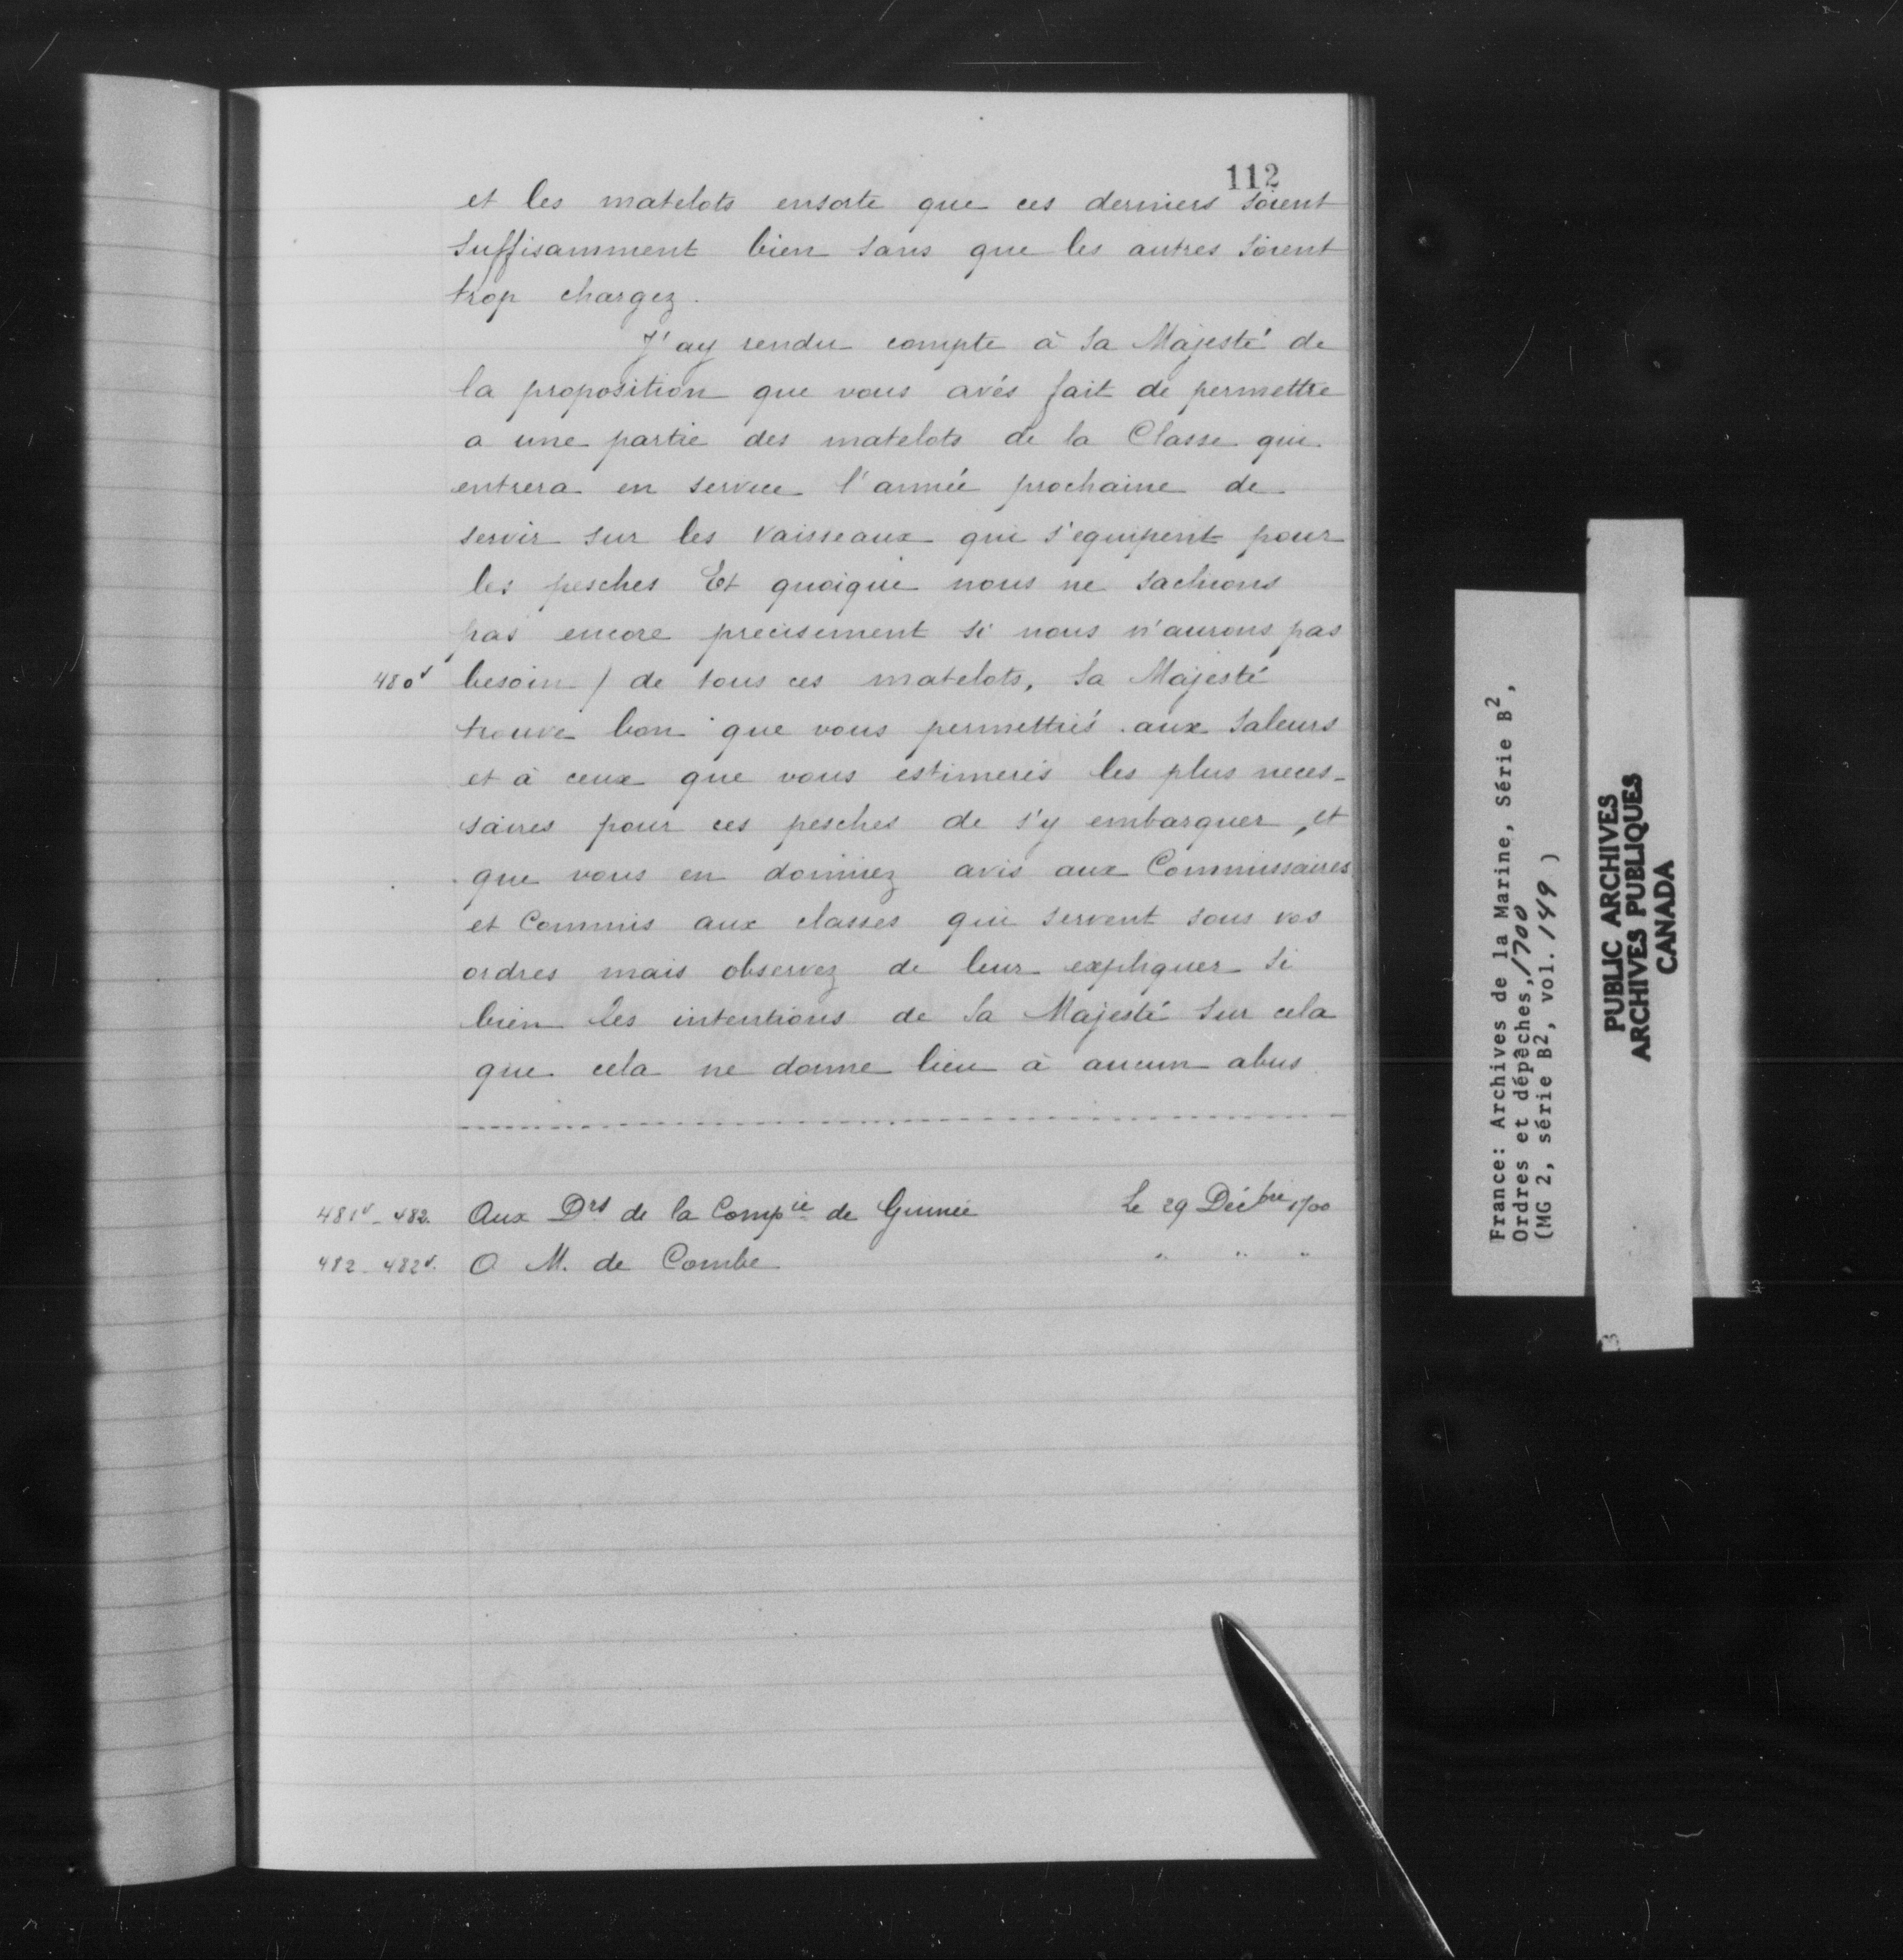 112
et les matelots ensorte que ces derniers soient
suffisamment bien sans que les autres soient
trop chargez.
J'ay rendu compte à Sa Majesté de
la proposition que vous avés fait de permettre
a une partie des matelots de la Classe qui
entrera en service l'année prochaine de
servir sur les vaisseaux qui s'equipent pour
les pesches Et quoique nous ne sachions
pas encore precisement si nous n'aurons pas
480v besoin / de tous ces matelots, Sa Majesté
trouve bon que vous permettiés aux saleurs
et à ceux que vous estimerés les plus neces-
saires pour ces pesches de s'y embarquer, et
que vous en donniez avis aux Commissaires
et Commis aux classes qui servent sous vos
ordres mais observez de leur expliquer si
bien les intentions de Sa Majesté sur cela
que cela ne donne lieu à aucun abus.
481v - 482. Aux Drs de la Compie de Guinée Le 29 Décbre 1700
482 - 482v. A M. de Combe " " "
France: Archives de la Marine, Série B2,
Ordres et dépêches, 1700
(MG 2, série B2, vol. 149 )
PUBLIC ARCHIVES
ARCHIVES PUBLIQUES
CANADA